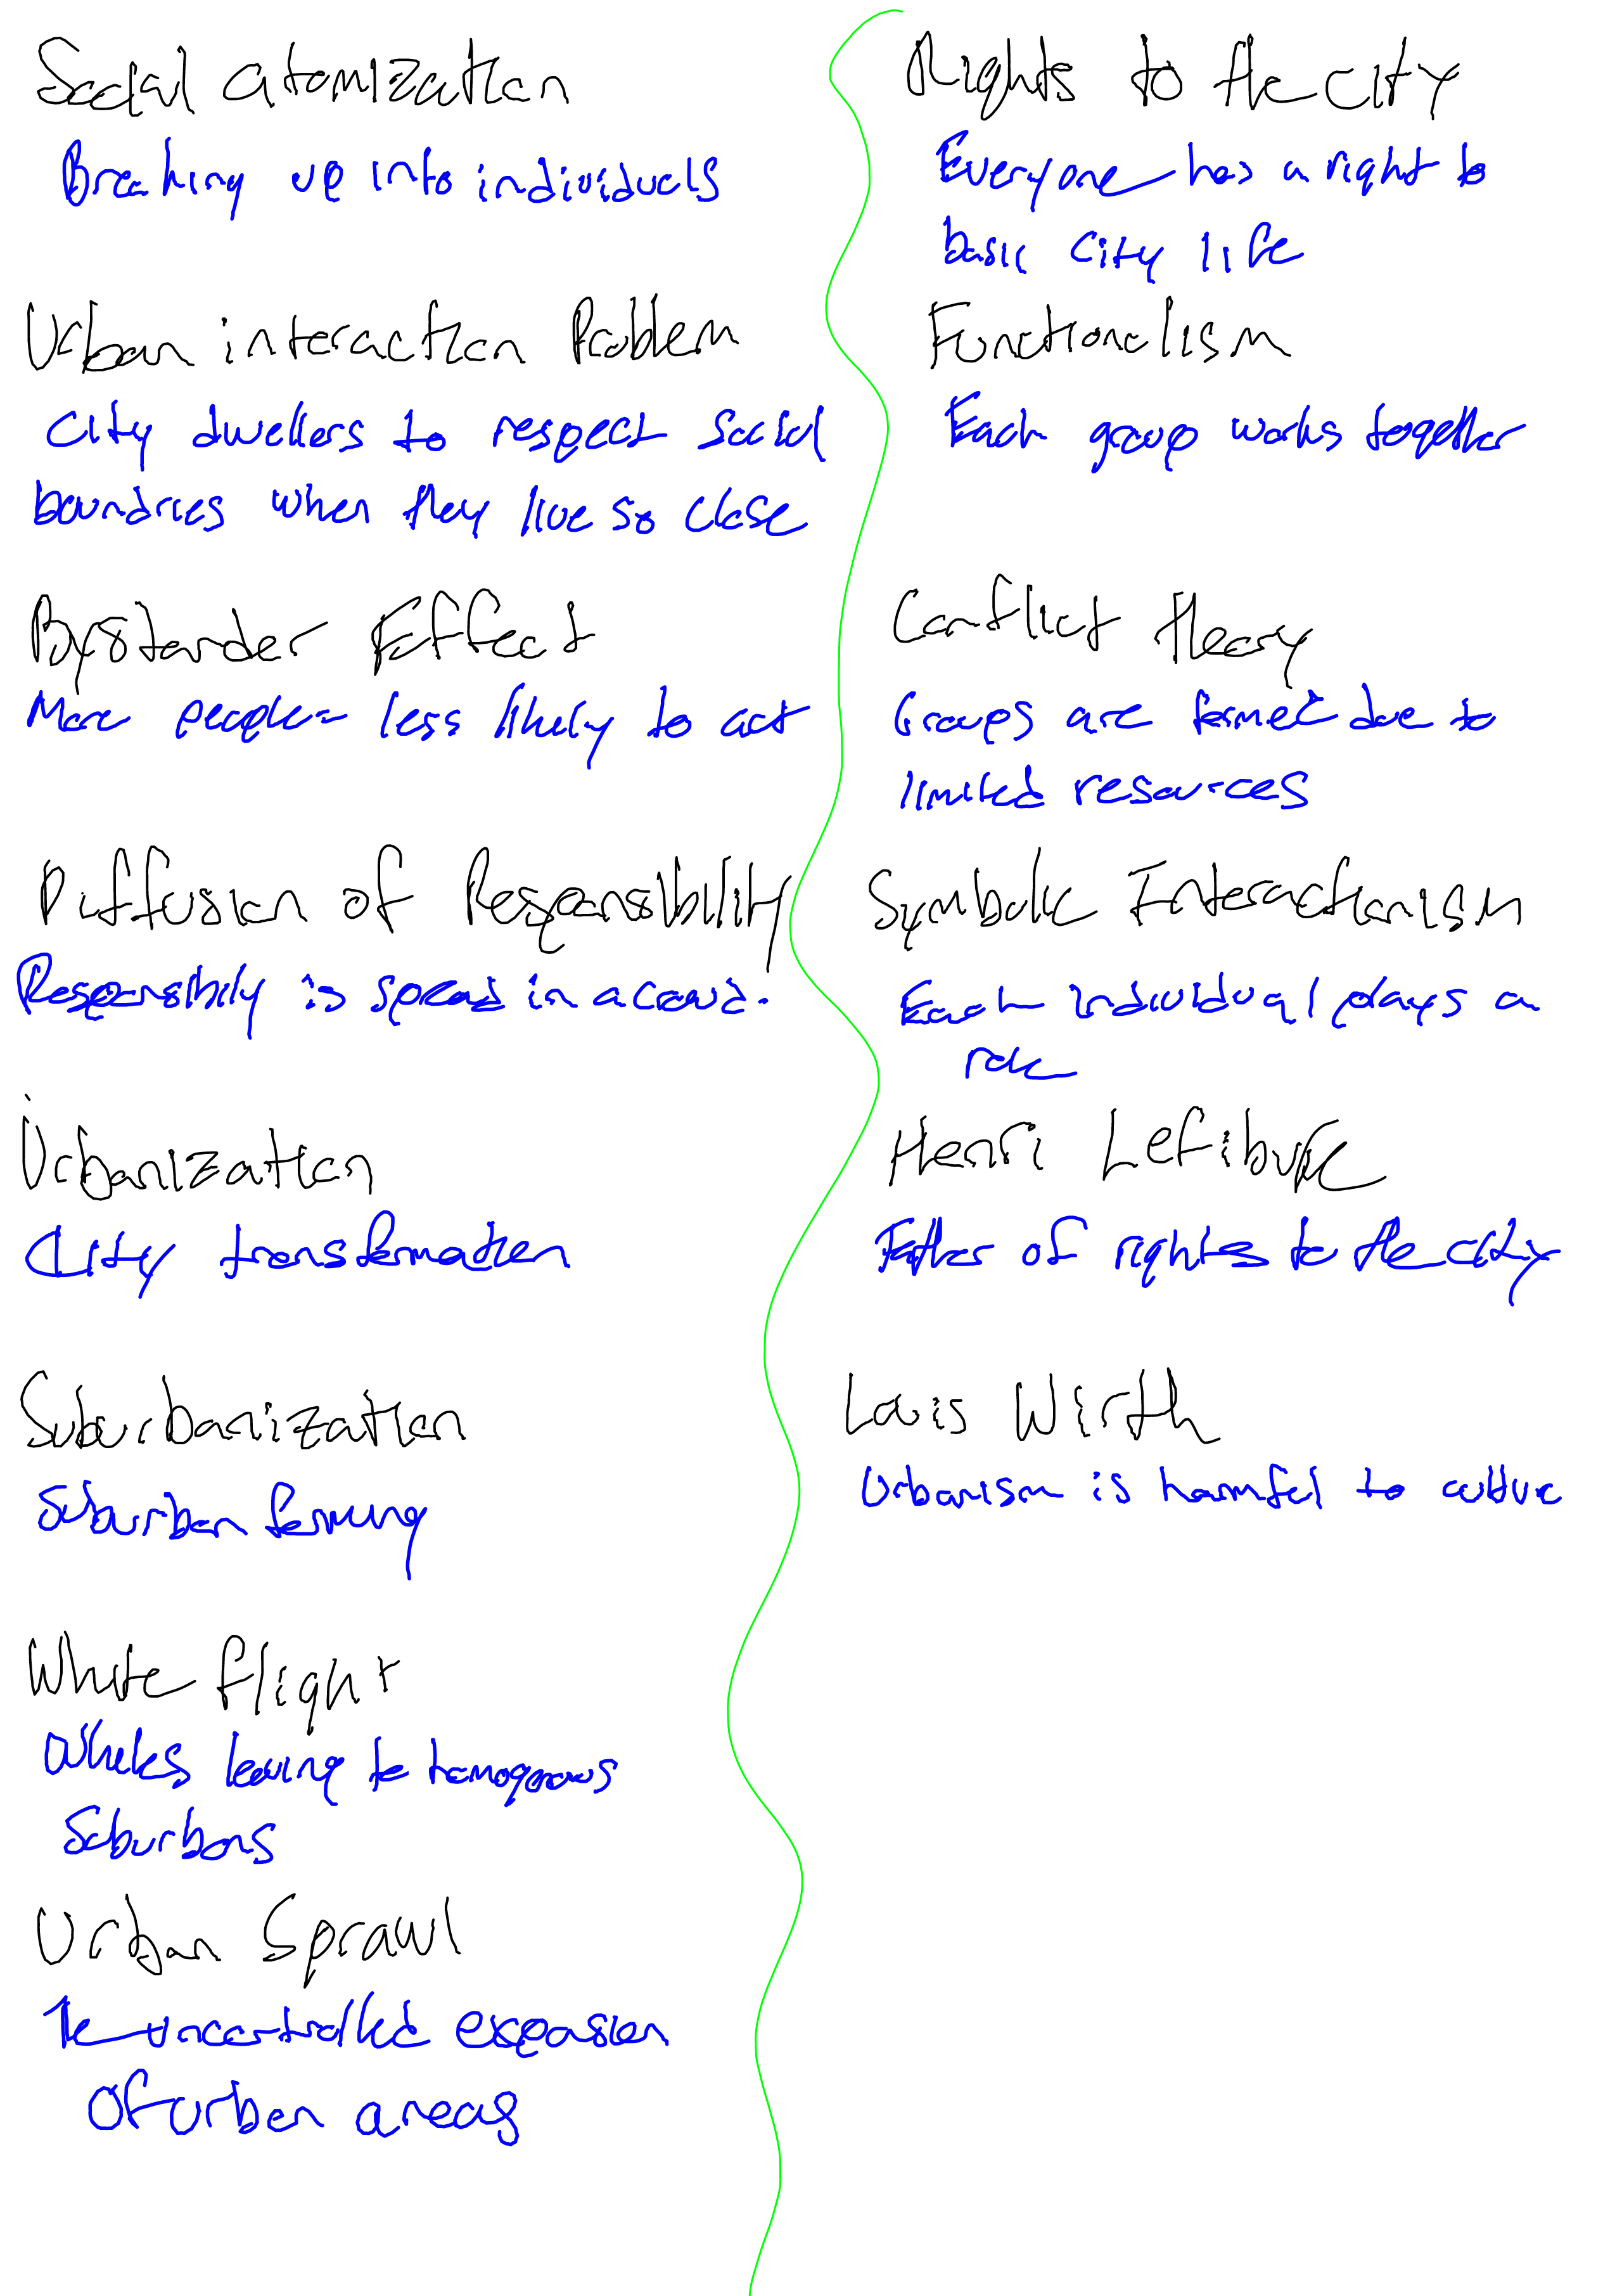 Social atomization
Breaking up into individuals
Urban interaction Problem
City dwellers to respect social
boundries when they live so close
Bystander Effect
More people = less likely to act
Diffusion of Responsibility
Responsibily is spread in a crowd.
Urbanization
City transformation
Suburbanization
Suburban forming
White flight
Whites leaving to
Suburbans
Urban Sprawl
The uncontrolled expansion
Of urban areas
Rights to the city
Everyone has a right to
basic city life
Functionalism
Each group works together
Conflict theory
Groups are formed due to
limited resources
Symbolic Interactionism
Each individual plays a
role
Henri Lefibvre
Father of rights to the city
Louis Wirth
Urbanism is harmful to